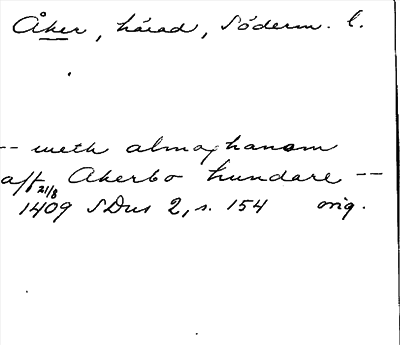 Åker, härad, Söderm. l.
-- meth almoghanom
aff Akerbo hundare --
21/8
1409 SDns 2, s. 154 orig.